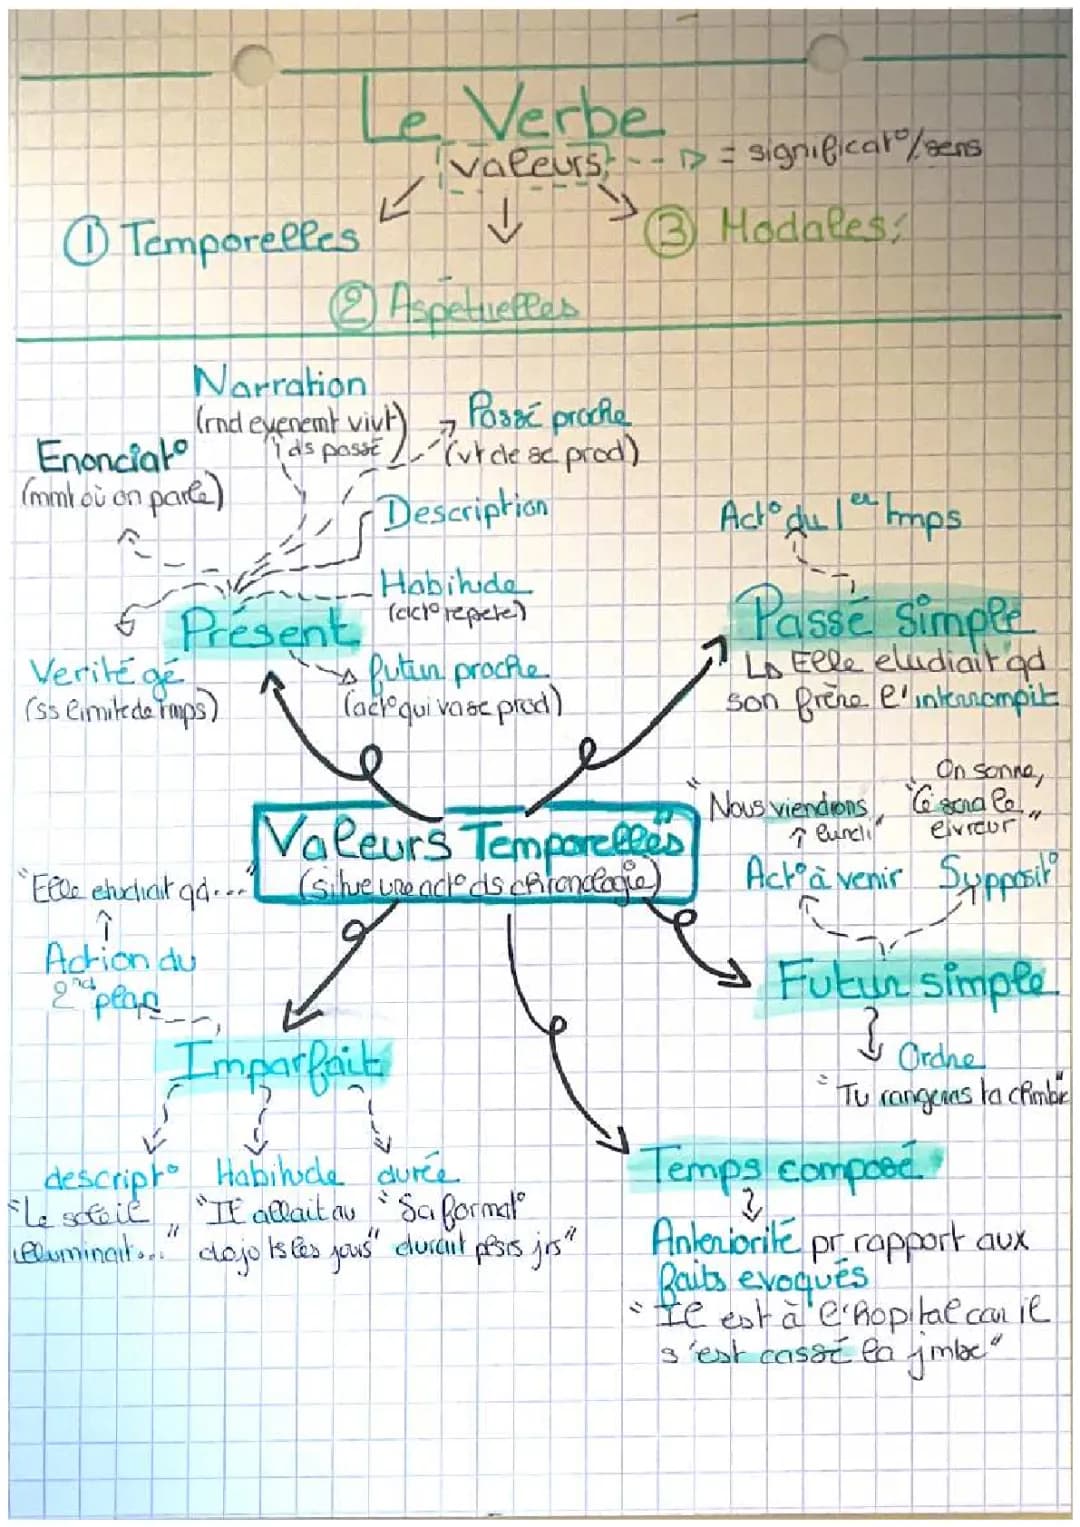 Le Verbe
valeurs = significat°/sens
① Temporelles
③ Modales:
② Aspetuelles
Narration
(rnd evenemt vivt)
ds passé
Passé proche
(vt de se prod)
Enonciat°
(mmt où on parle)
Description
Act° du 1er tmps
Habitude
(act° repete)
Présent
Passé simple
Verité gé
(ss limite de tmps)
futur proche
(act° qui va se prod)
↳ Elle etudiait qd
son frère l'interrompit
"Nous viendrons
lundi"
On sonne,
"Ce sera le
livreur"
Valeurs Temporelles
(situe une act° ds chronologie)
Act° à venir
Supposit°
"Elle etudiait qd..."
Action du
2nd plan
Futur simple
Imparfait
Ordre
"Tu rangeras ta chmbr
Temps composé
descript°
"Le soleil
illuminait..."
Habitude
"Il allait au
dojo ts les jours"
durée
"Sa format°
durait plsrs jrs"
Anteriorité pr rapport aux
faits evoqués
"Il est à l'hopital car il
s'est cassé la jmbe"